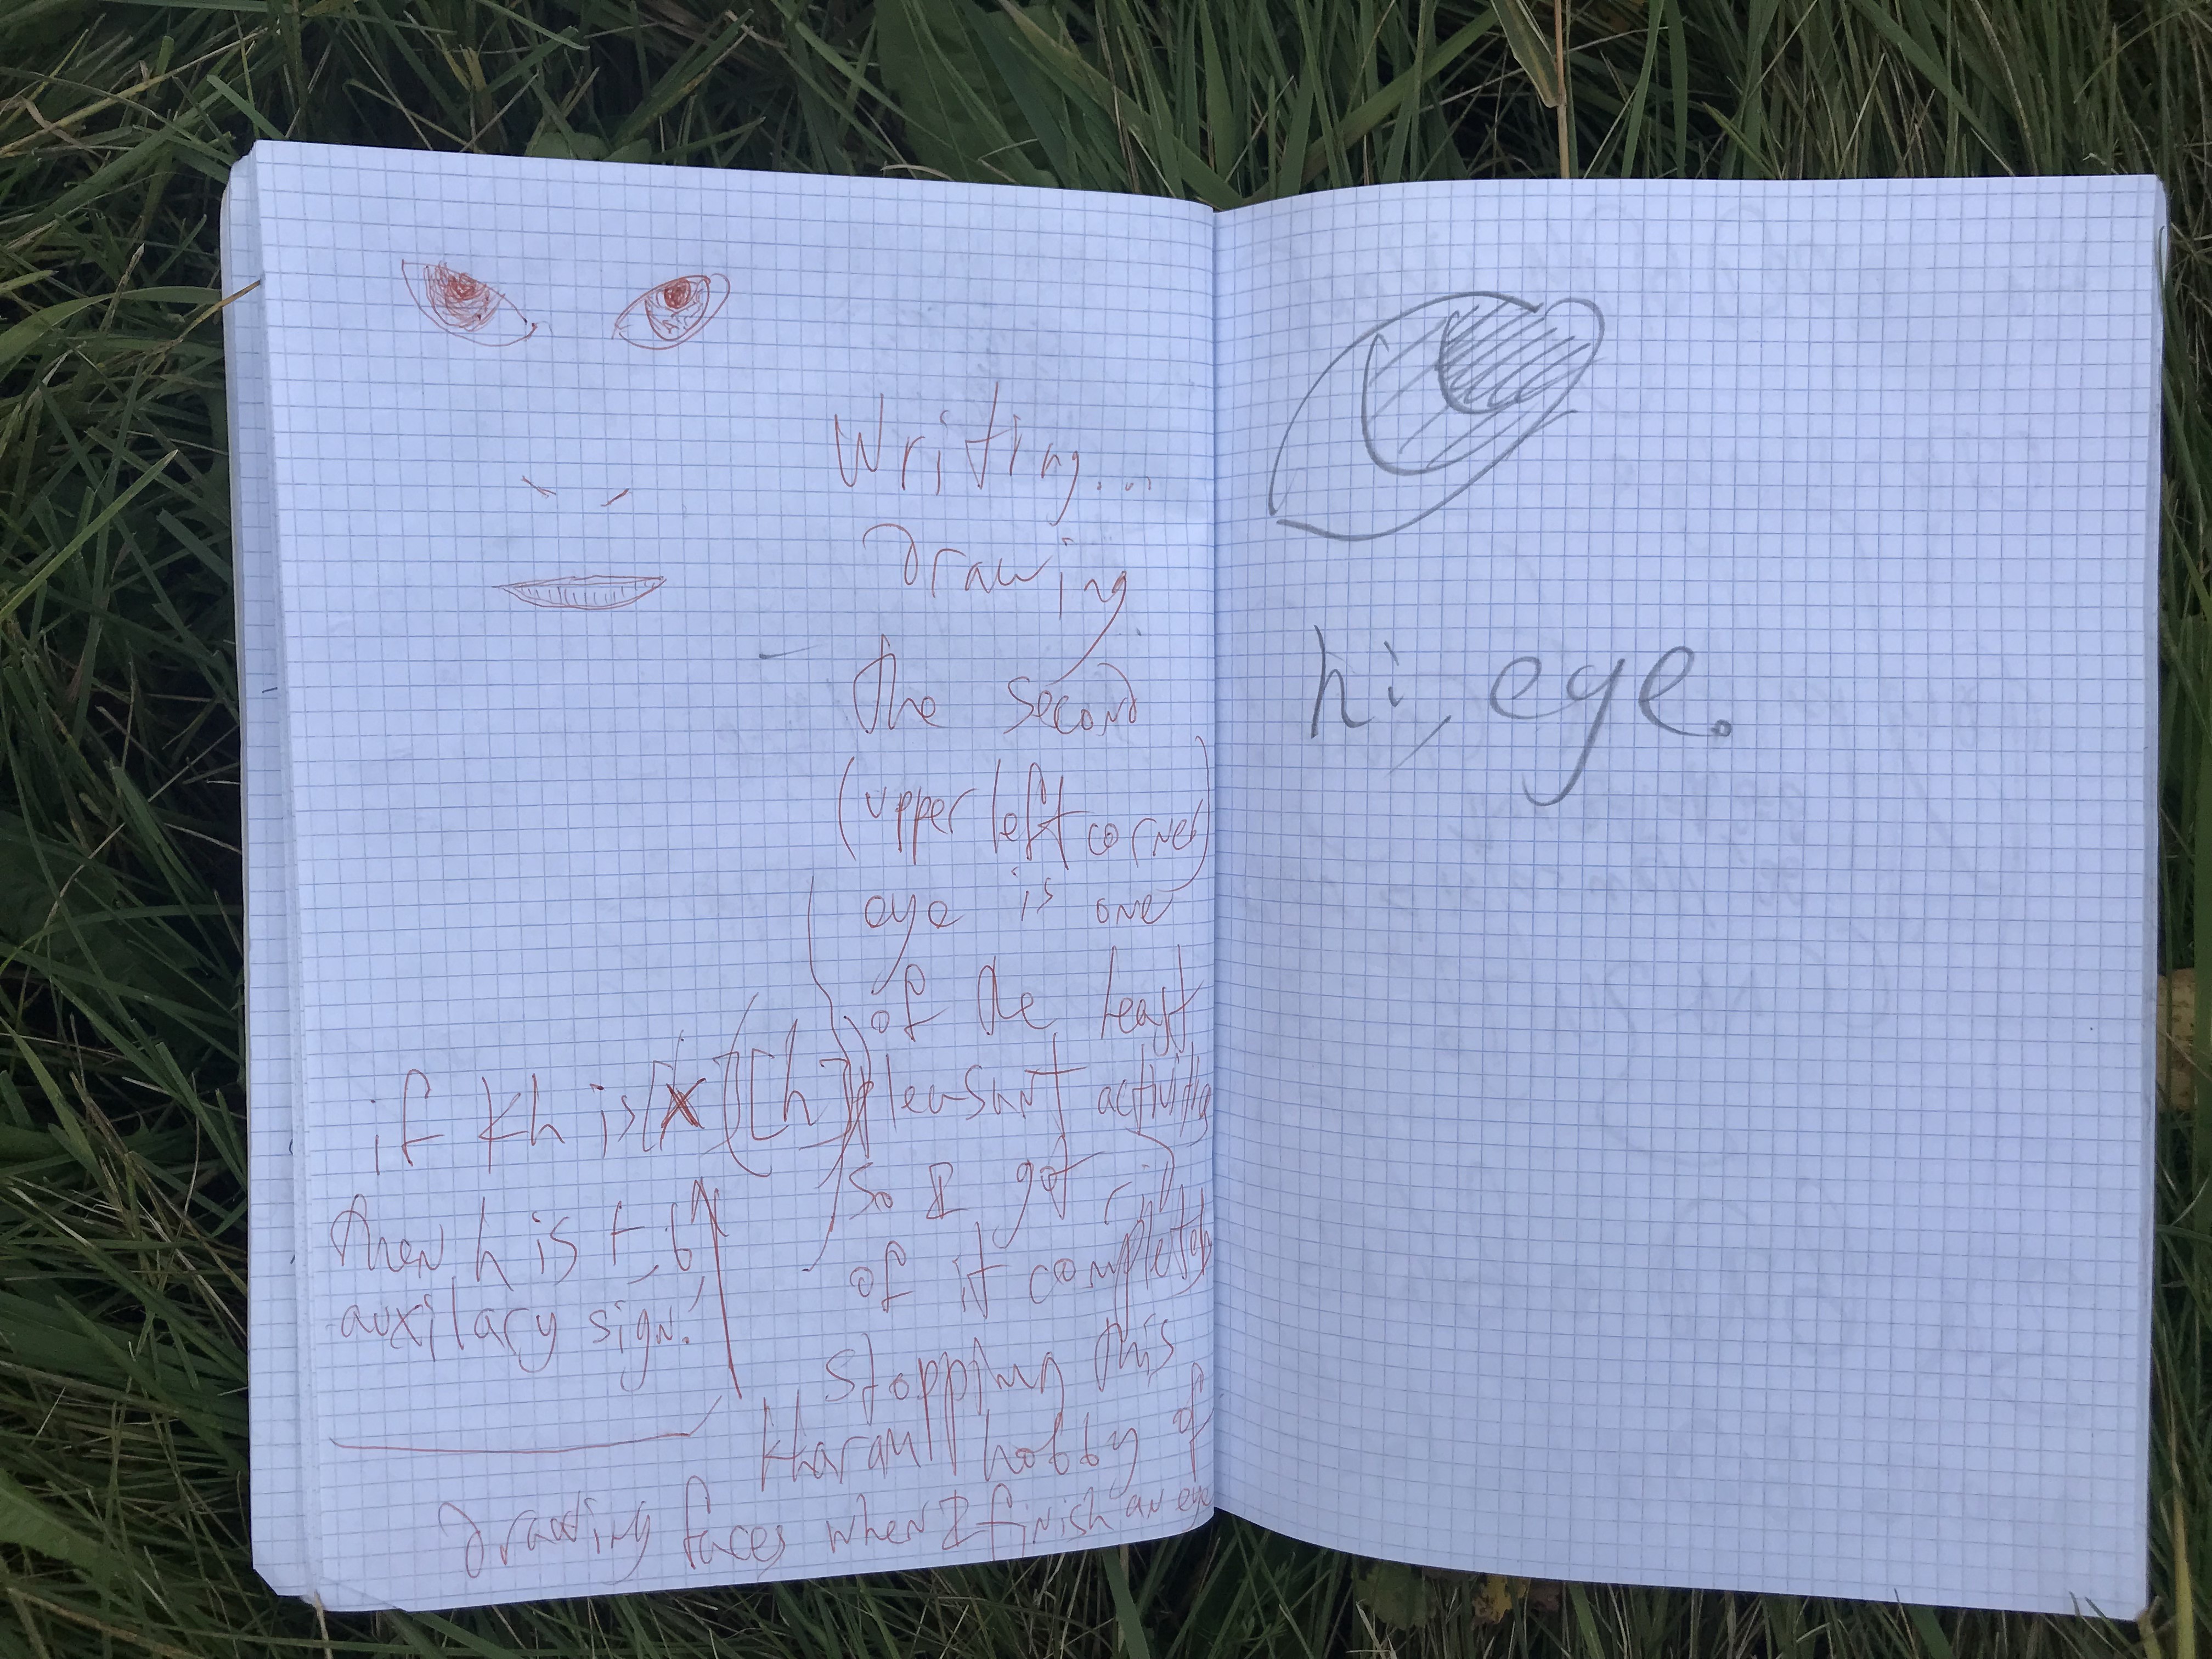 Writing...
Drawing
the second
(upper left corner)
eye is one
of the least
pleasant activities
so I got
of it completely
stopping this
hobby of
Drawing faces when I finish an eye
if kh is x [h]
then h is
auxilary sign.
hi, eye.